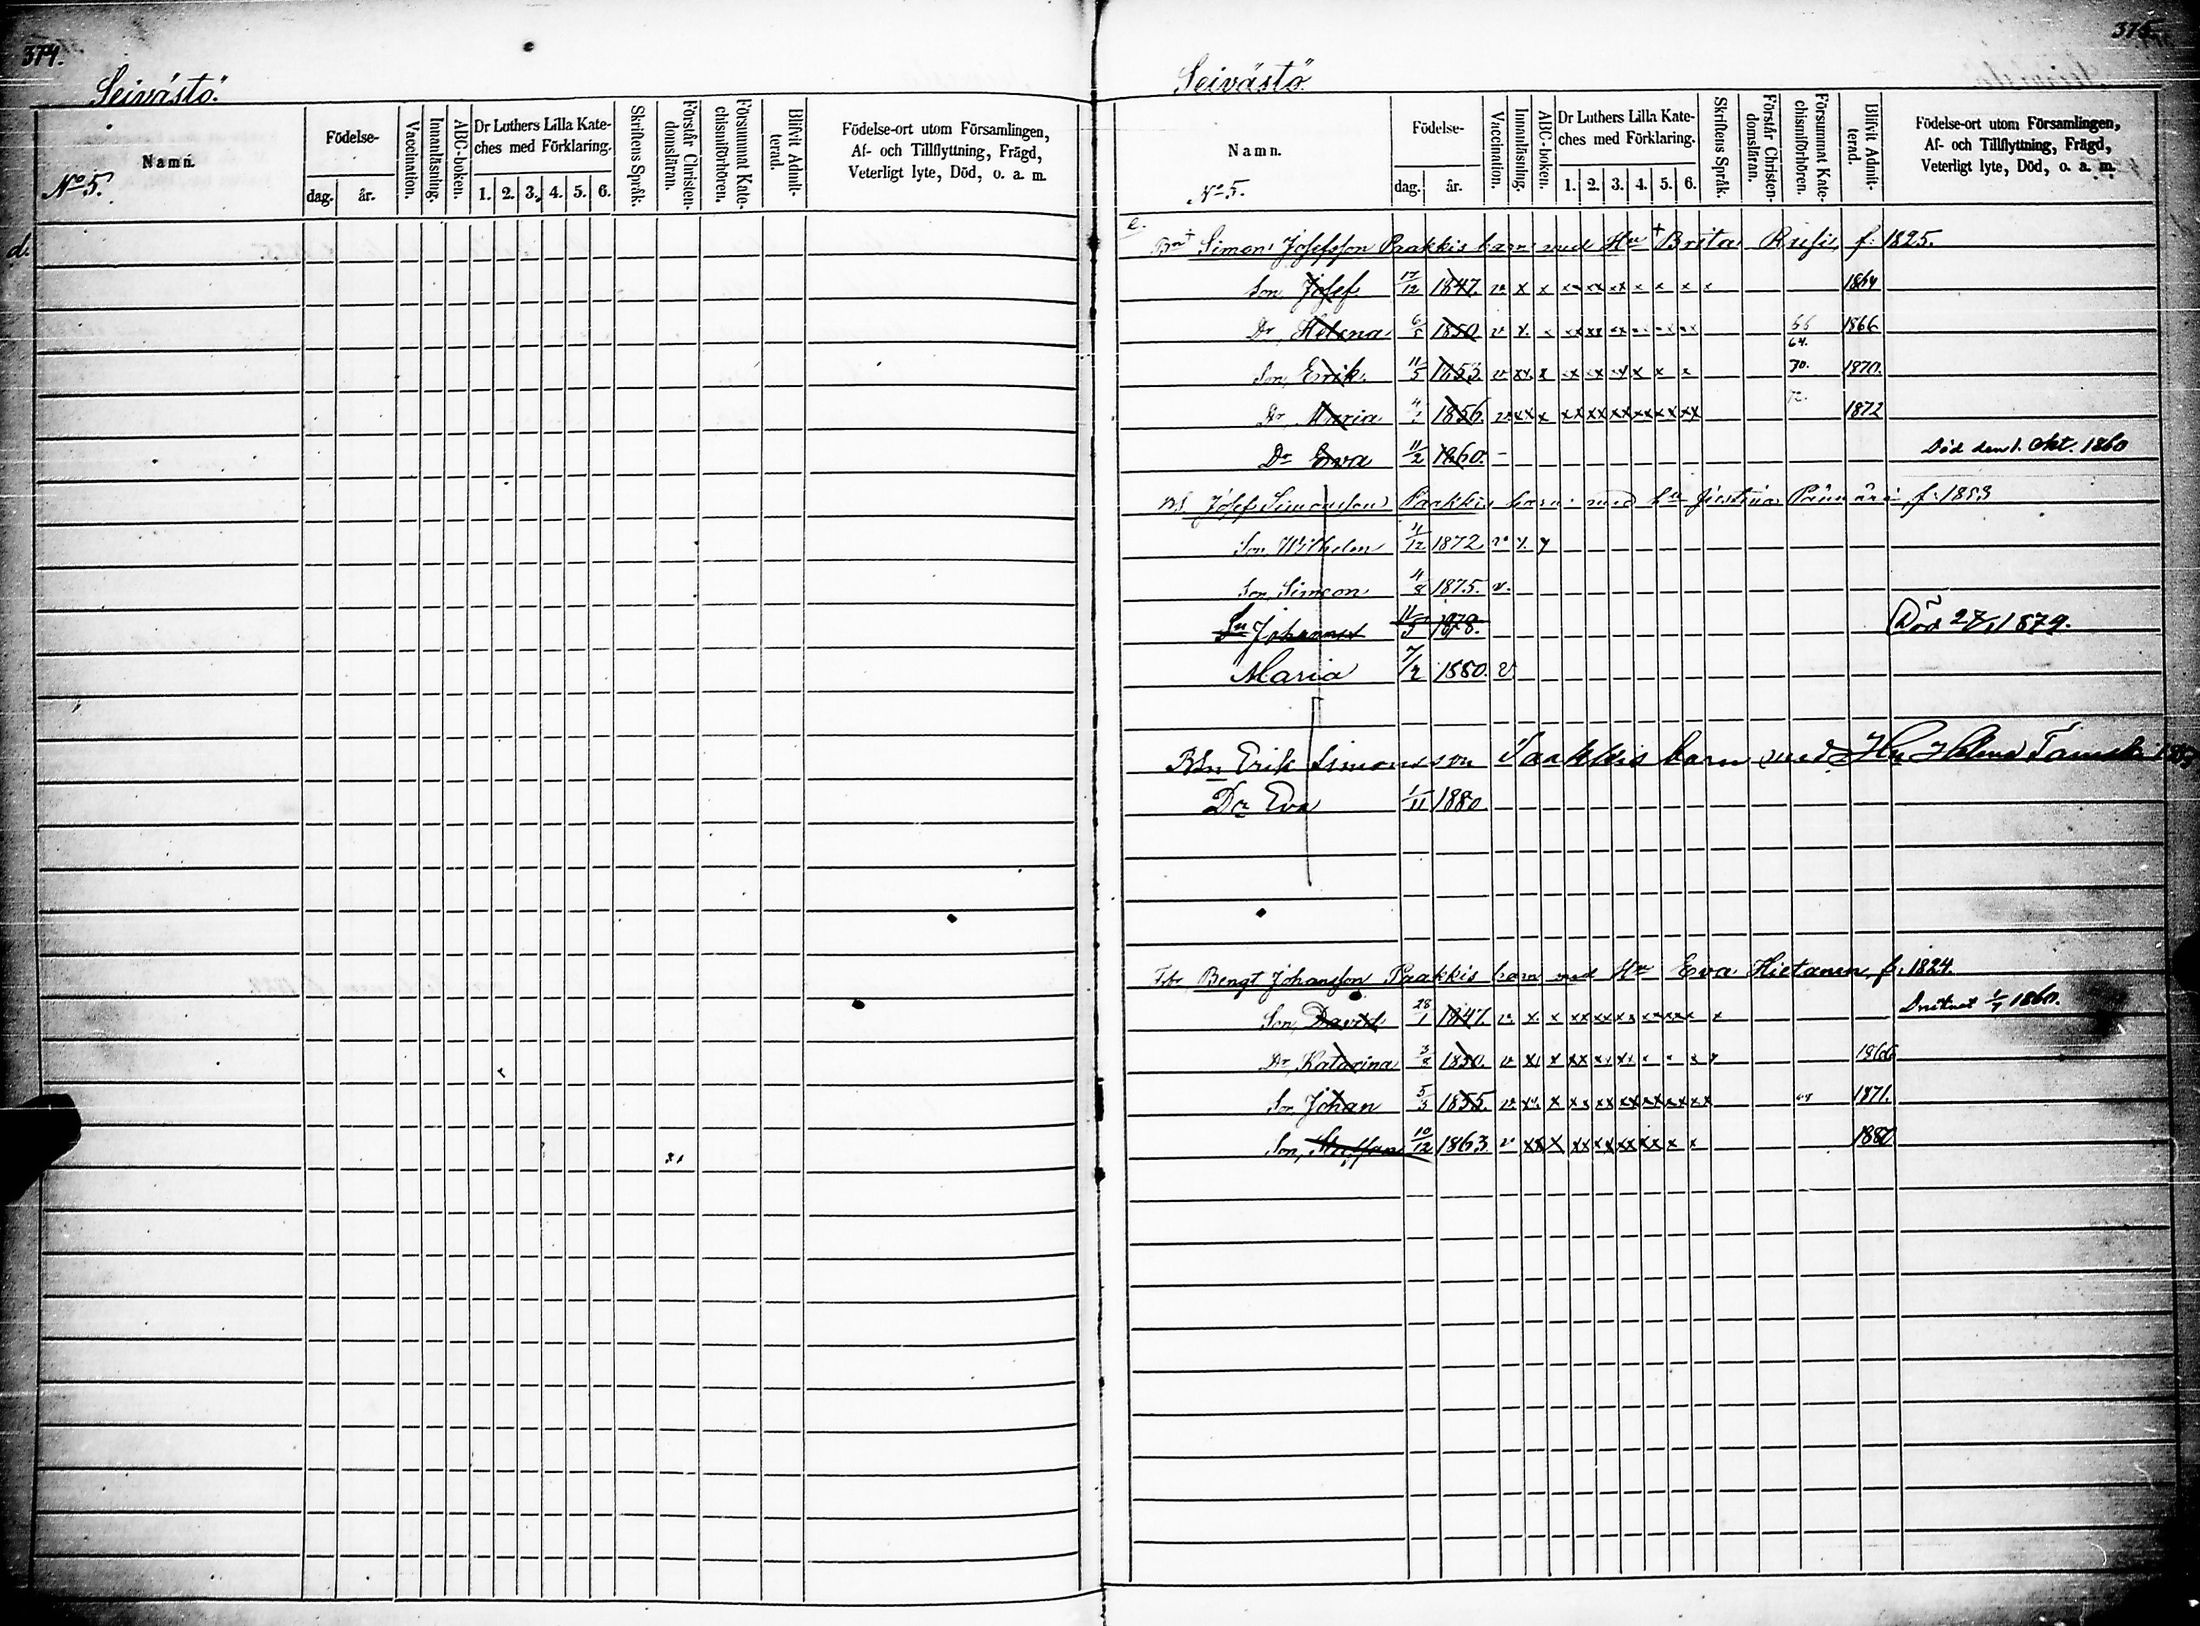 374.
Seivästö.
Namn.
No 5.
Födelse-
dag. år.
Vaccination.
Innanläsning.
ABC-boken.
Dr Luthers Lilla Kate-
ches med Förklaring.
1. 2. 3. 4. 5. 6.
Skriftens Språk.
Förstår Christen-
domsläran.
Försummat Kate-
chismiförhören.
Blifvit Admit-
terad.
Födelse-ort utom Församlingen,
Af- och Tillflyttning, Frägd,
Veterligt lyte, Död, o. a. m.
d.
375.
Seivästö.
Namn.
No 5.
Födelse-
dag. år.
Vaccination.
Innanläsning.
ABC-boken.
Dr Luthers Lilla Kate-
ches med Förklaring.
1. 2. 3. 4. 5. 6.
Skriftens Språk.
Förstår Christen-
domsläran.
Försummat Kate-
chismiförhören.
Blifvit Admit-
terad.
Födelse-ort utom Församlingen,
Af- och Tillflyttning, Frägd,
Veterligt lyte, Död, o. a. m.
e.
Bn + Simon Josefsson Paakkis barn med Hu + Brita f. 1825.
Son, Josef 17/12 1847. v x x xx xx xx x x x x 1864
Dr, Helena 6/5 1850. v x. x xx xx xx xx xx xx 66 64. 1866
Son, Erik. 11/5 1853. v xx x xx xx xx x x x 70. 1870.
Dr, Maria 4/1 1856. v xx x xx xx xx xx xx xx 72. 1872
Dr Eva 11/2 1860. – Död den 1. Okt. 1860
BS Josef Simonsson Paakkis barn med hu Justina f: 1853
Son Wilhelm 11/12 1872. v x x
Son, Simeon 4/8 1875. v.
Sn Johannes 11/5 1878. Död 1879.
Maria 7/2 1880. v
BSn Erik Simonsson Paakkis barn med Hu Helena
Dr Eva 1/11 1880
Bengt Johansson Paakkis barn med Hu Eva Hietanen, f. 1824.
Son, David 28/1 1847. v x x xx xx xx xx xx x Drunknat 1/7 1860.
Dr, Katarina 3/8 1850. v xx x xx xx xx x x x x 1866
Son Johan 5/3 1855. v xx x xx xx xx xx xx xx 1871.
Son, Staffan 10/12 1863. v xx x xx xx xx xx x x 1880.